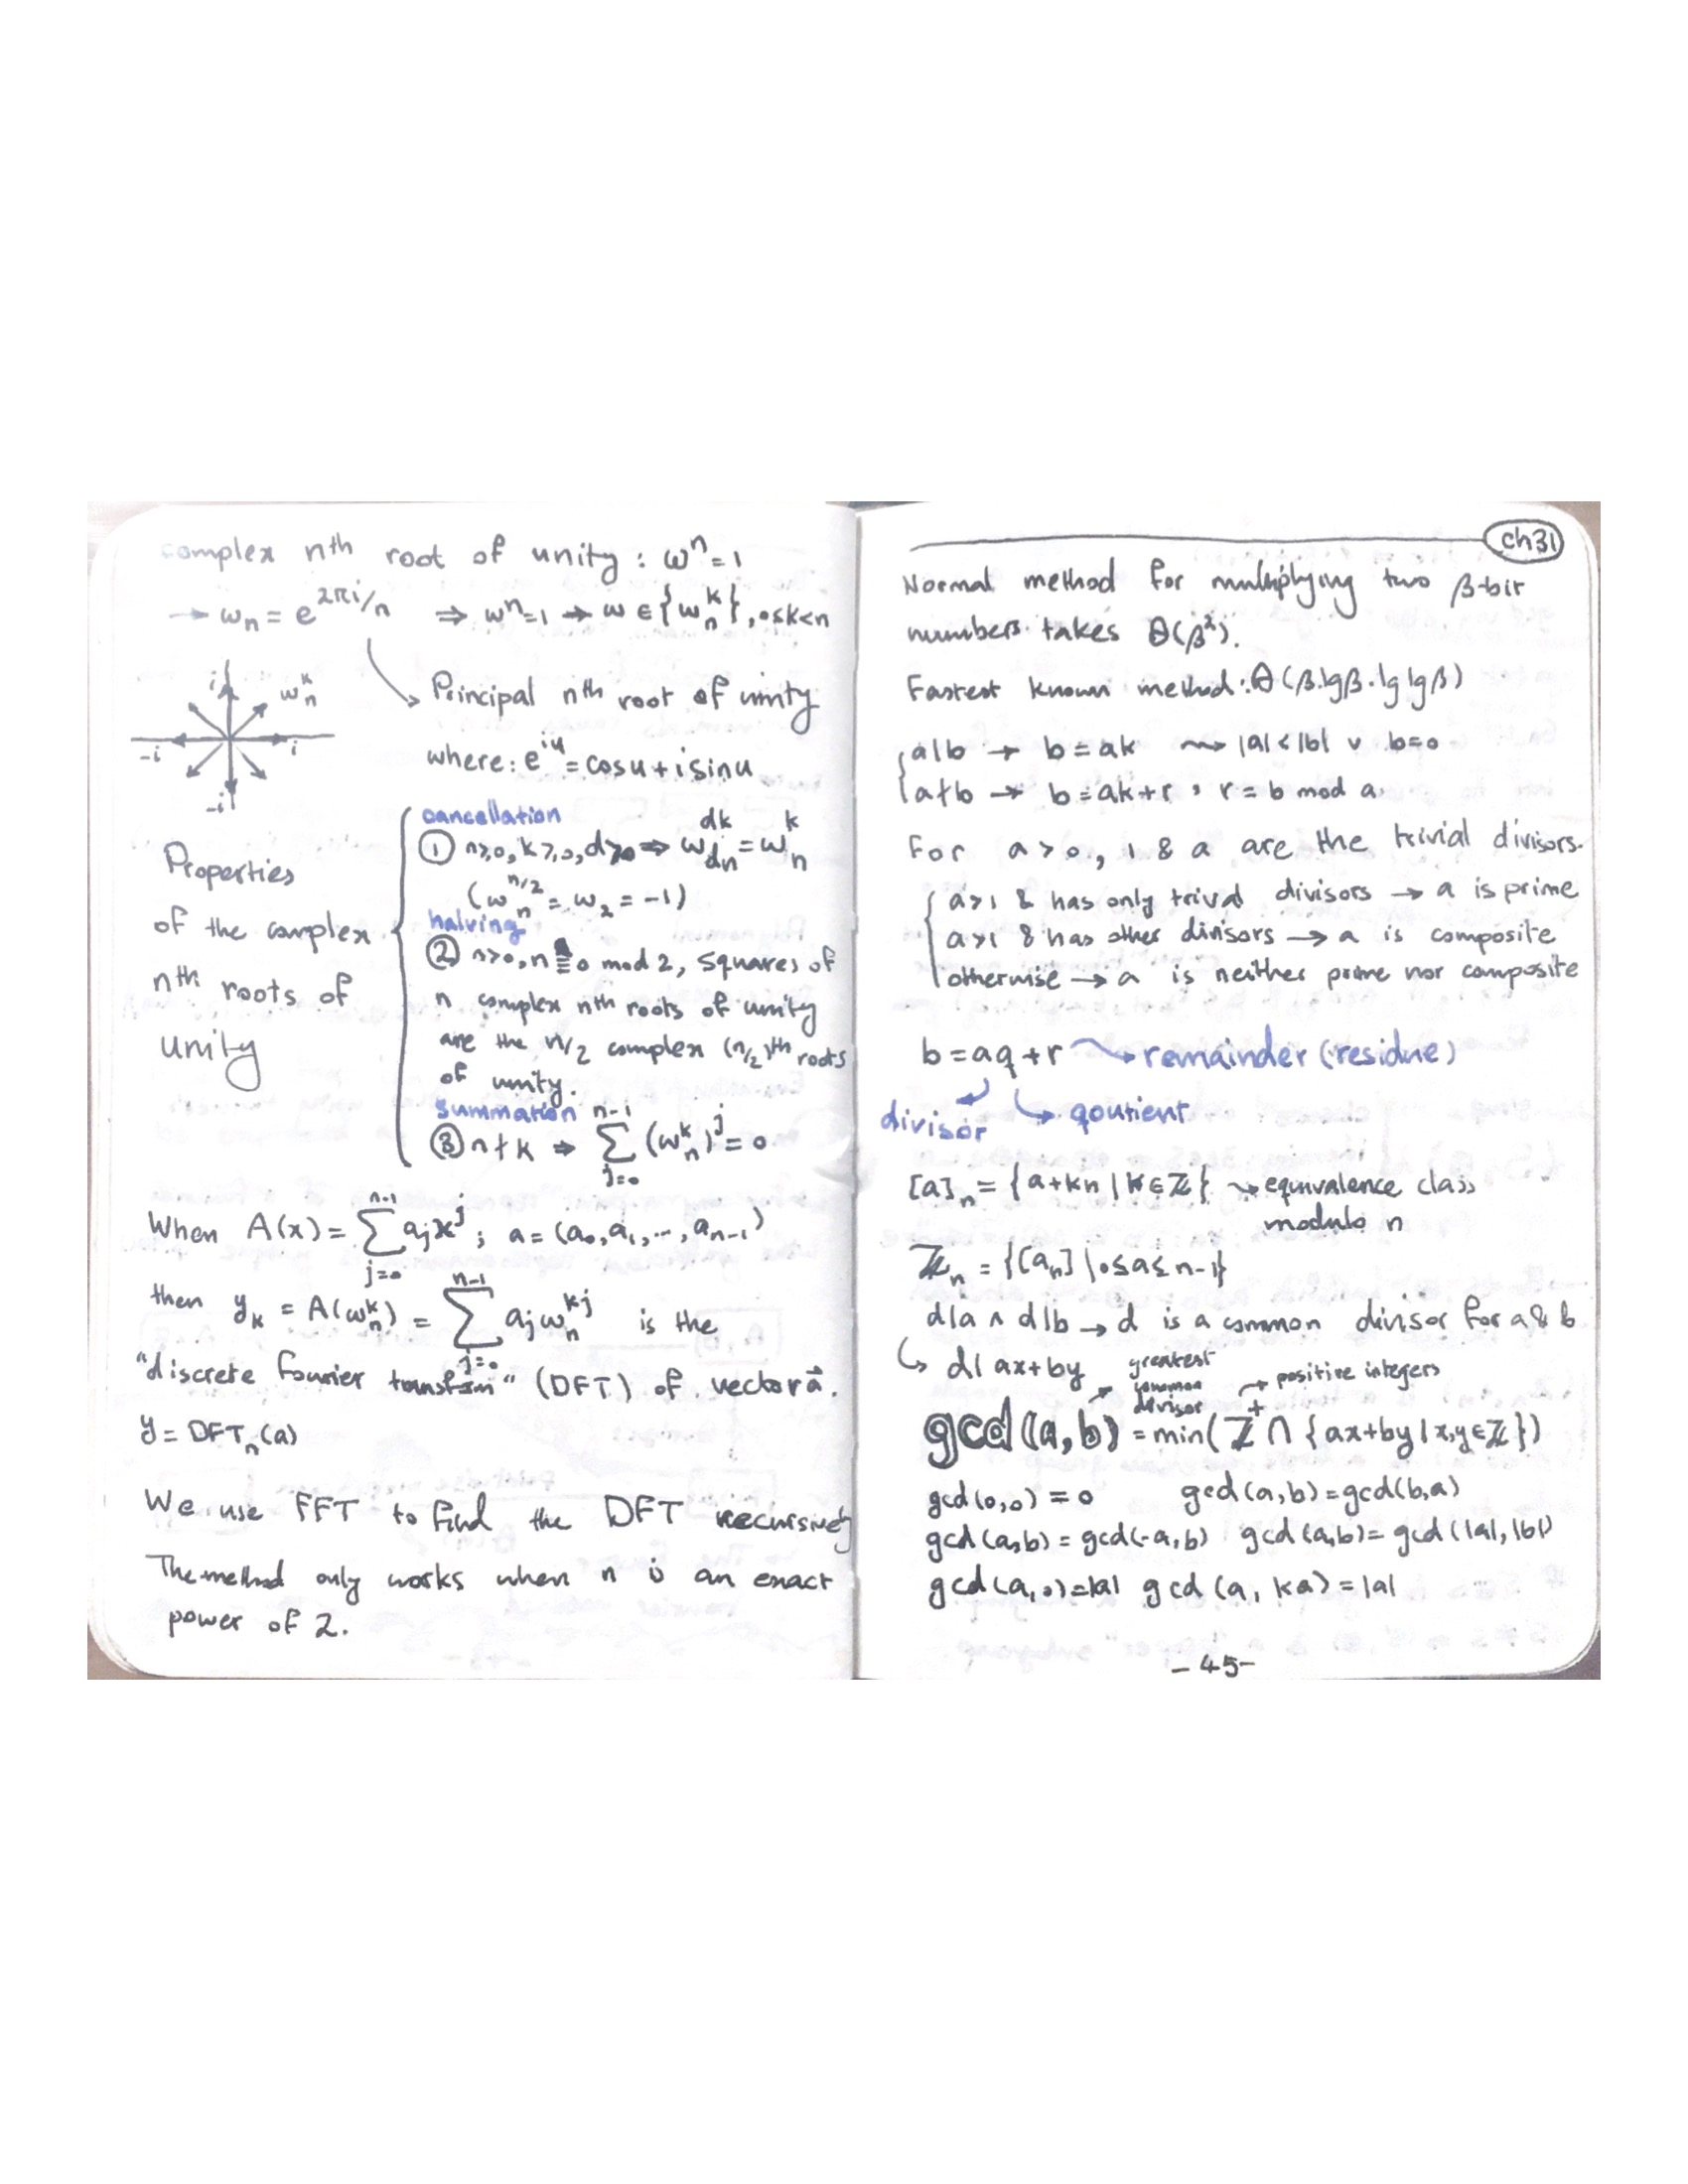 complex nth root of unity : ωⁿ=1
→ ωₙ = e^{2πi/n} ⇒ ωⁿ=1 → ω ∈ {ωₙᵏ}, 0≤k<n
i ωₙᵏ
-i i
-i
Principal nth root of unity
where: e^{iu} = cosu + i sinu
Properties
of the complex
nth roots of
unity
cancellation
① n≥0, k≥0, d>0 ⇒ ω_{dn}^{dk} = ω_n^k
(ω_n^{n/2} = ω₂ = -1)
halving
② n>0, n ≡ 0 mod 2, squares of
n complex nth roots of unity
are the n/2 complex (n/2)th roots
of unity.
summation
③ n∤k ⇒ ∑_{j=0}^{n-1} (ω_n^k)^j = 0
When A(x) = ∑_{j=0}^{n-1} a_j x^j ; a = (a₀, a₁, ..., a_{n-1})
then y_k = A(ω_n^k) = ∑_{j=0}^{n-1} a_j ω_n^{kj} is the
"discrete Fourier transform" (DFT) of vector a⃗.
y = DFTₙ(a)
We use FFT to find the DFT recursively
The method only works when n is an exact
power of 2.
ch31
Normal method for multiplying two β-bit
numbers takes Θ(β²).
Fastest known method: Θ(β.lgβ.lg lgβ)
a|b → b = ak ⇝ |a| < |b| ∨ b=0
a∤b → b = ak+r , r = b mod a
For a>0, 1 & a are the trivial divisors.
a>1 & has only trival divisors → a is prime
a>1 & has other divisors → a is composite
otherwise → a is neither prime nor composite
b = aq + r ⇝ remainder (residue)
divisor qoutient
[a]ₙ = {a+kn | k∈ℤ} ⇝ equivalence class
modulo n
ℤₙ = {[aₙ] | 0≤a≤n-1}
d|a ∧ d|b → d is a common divisor for a & b
↳ d| ax+by
greatest
common
divisor
→ positive integers
gcd(a,b) = min(ℤ⁺ ∩ {ax+by | x,y∈ℤ})
gcd(0,0) = 0 gcd(a,b) = gcd(b,a)
gcd(a,b) = gcd(-a,b) gcd(a,b) = gcd(|a|,|b|)
gcd(a,0)=|a| gcd(a, ka) = |a|
-45-